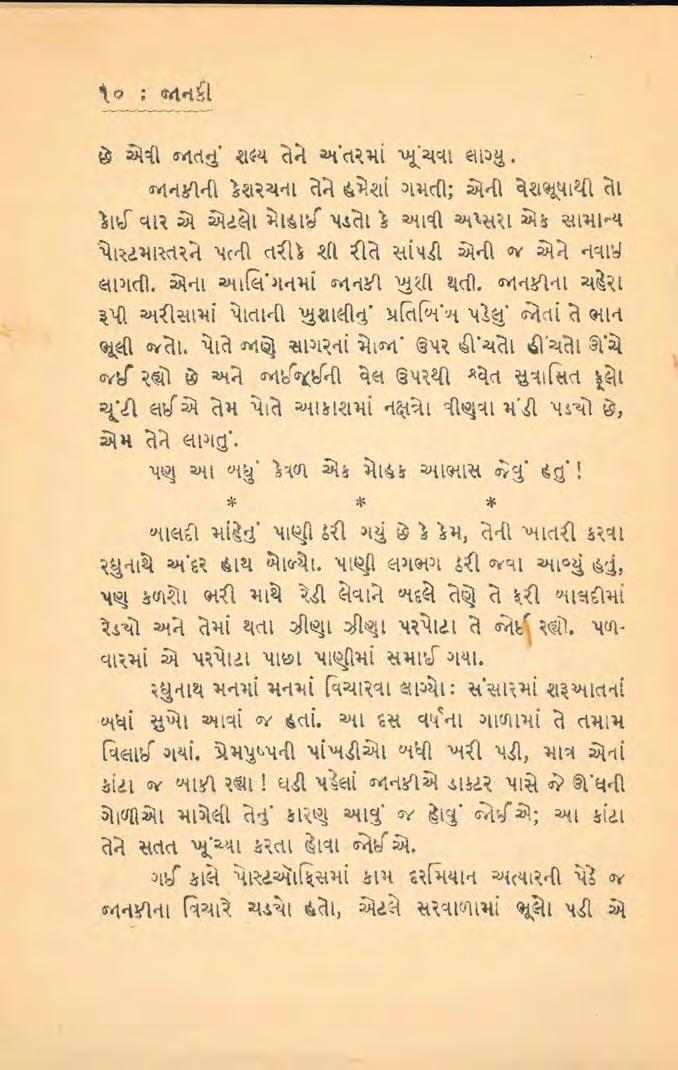 ૧૦ : જાનકી
છે એવી જાતનું શલ્ય તેને અંતરમાં ખૂંચવા લાગ્યુ.
જાનકીની કેશરચના તેને હમેશાં ગમતી; એની વેશભૂષાથી તો
કોઈ વાર એ એટલો મોહાઈ પડતો કે આવી અપ્સરા એક સામાન્ય
પોસ્ટમાસ્તરને પત્ની તરીકે શી રીતે સાંપડી એની જ એને નવાઈ
લાગતી. એના આલિંગનમાં જાનકી ખુશી થતી. જાનકીના ચહેરા
રૂપી અરીસામાં પોતાની ખુશાલીનું પ્રતિબિંબ પડેલું જોતાં તે ભાન
ભૂલી જતો. પોતે જાણે સાગરનાં મોજાં ઉપર હીંચતો હીંચતો ઊંચે
જઈ રહ્યો છે અને જાઈજૂઈની વેલ ઉપરથી શ્વેત સુવાસિત ફૂલો
ચૂંટી લઈએ તેમ પોતે આકાશમાં નક્ષત્રો વીણવા મંડી પડ્યો છે,
એમ તેને લાગતું.
પણ આ બધું કેવળ એક મોહક આભાસ જેવું હતું!
* * *
બાલદી માંહેનું પાણી ઠરી ગયું છે કે કેમ, તેની ખાતરી કરવા
રઘુનાથે અંદર હાથ બોળ્યો. પાણી લગભગ ઠરી જવા આવ્યું હતું,
પણ કળશો ભરી માથે રેડી લેવાને બદલે તેણે તે ફરી બાલદીમાં
રેડ્યો અને તેમાં થતા ઝીણા ઝીણા પરપોટા તે જોઈ રહ્યો. પળ-
વારમાં એ પરપોટા પાછા પાણીમાં સમાઈ ગયા.
રઘુનાથ મનમાં મનમાં વિચારવા લાગ્યો: સંસારમાં શરૂઆતનાં
બધાં સુખો આવાં જ હતાં. આ દસ વર્ષના ગાળામાં તે તમામ
વિલાઈ ગયાં. પ્રેમપુષ્પની પાંખડીઓ બધી ખરી પડી, માત્ર એનાં
કાંટા જ બાકી રહ્યા! ઘડી પહેલાં જાનકીએ ડાક્ટર પાસે જે ઊંઘની
ગોળીઓ માગેલી તેનું કારણ આવું જ હોવું જોઈએ; આ કાંટા
તેને સતત ખૂંચ્યા કરતા હોવા જોઈએ.
ગઈ કાલે પોસ્ટઑફિસમાં કામ દરમિયાન અત્યારની પેઠે જ
જાનકીના વિચારે ચડ્યો હતો, એટલે સરવાળામાં ભૂલો પડી એ